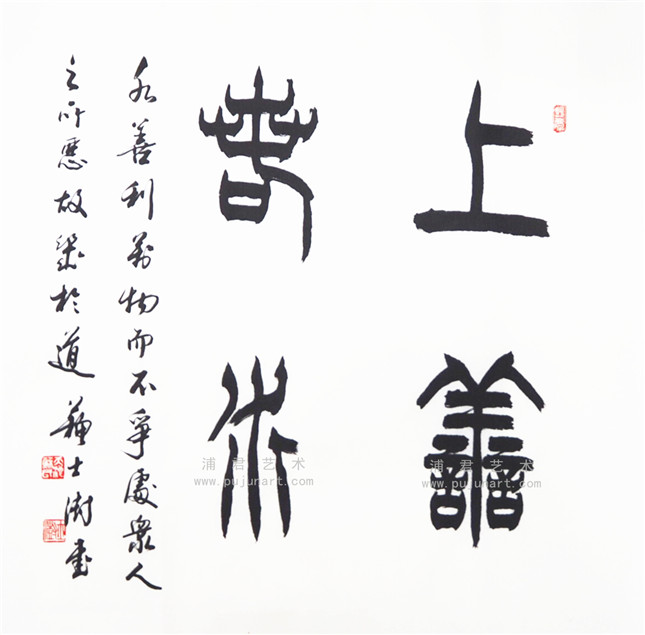 上善
若水
水善利萬物而不爭處衆人
之所惡故幾於道 蘇士澍書
浦君艺术
www.pujunart.com
浦君艺术
www.pujunart.com